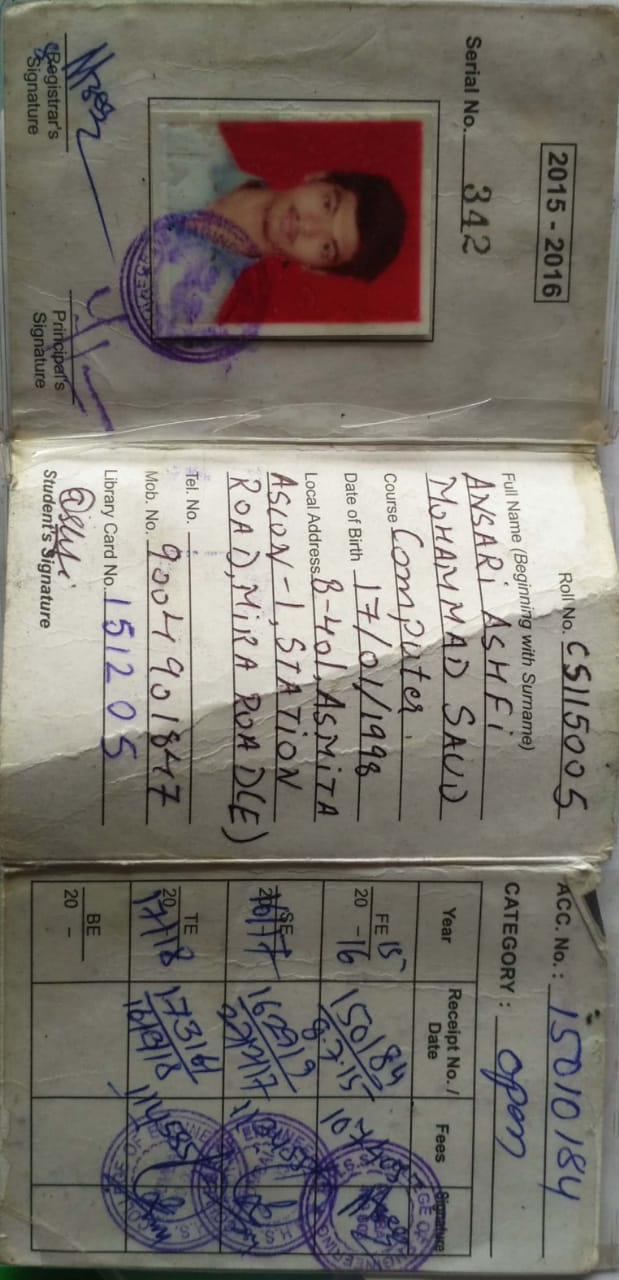 2015 - 2016
Serial No. 342
Registrar's
Signature
Principal's
Signature
Roll No. CS115005
Full Name (Beginning with Surname)
ANSARI ASHFI
MOHAMMAD SAUD
Course Computer
Date of Birth 17/01/1998
Local Address B-401, ASMITA
ASION-1, STATION
ROAD, MIRA ROAD(E)
Tel. No.
Mob. No. 9004901847
Library Card No. 151205
Student's Signature
ACC. No.: 15010184
CATEGORY: open
Year Receipt No./ Date Fees Signature
FE 15
20 -16 150184
8.7.15
SE
16/17
TE
17/18 17316
BE
20 -